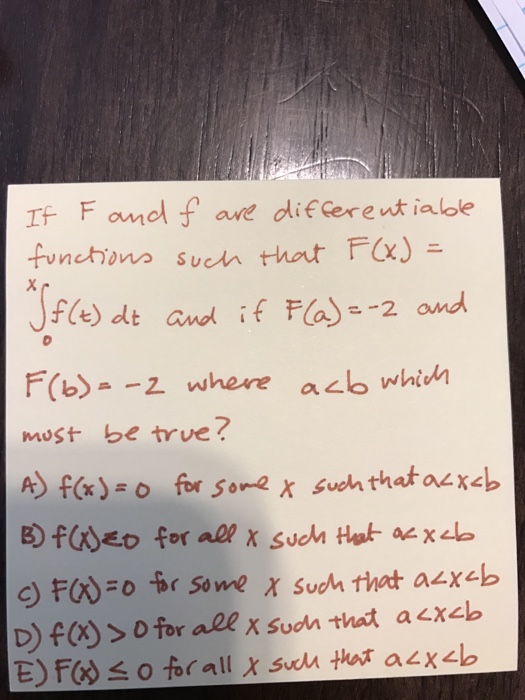 If F and f are differentiable
functions such that F(x) =
x
∫f(t) dt and if F(a)=-2 and
0
F(b)= -2 where a<b which
must be true?
A) f(x)=0 for some x such that a<x<b
B) f(x)≤0 for all x such that a<x<b
C) F(x)=0 for some x such that a<x<b
D) f(x)>0 for all x such that a<x<b
E) F(x)≤0 for all x such that a<x<b